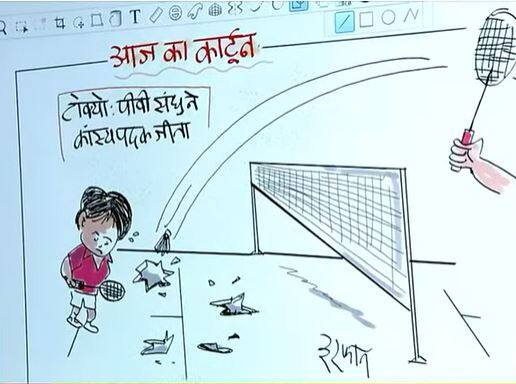 आज का कार्टून
टोक्यो: पीवी संधु ने
कांस्य पदक जीता
इरफान